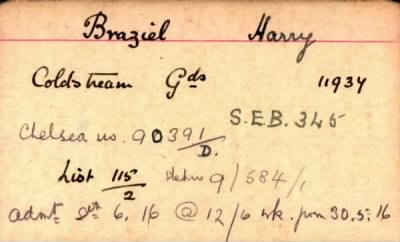 Braziel Harry
Coldstream Gds 11934
S.E.B. 345
Chelsea no. 90391/D.
List 115/2 9/584/1
admt 6. 16 @ 12/6 wk. from 30.5.16